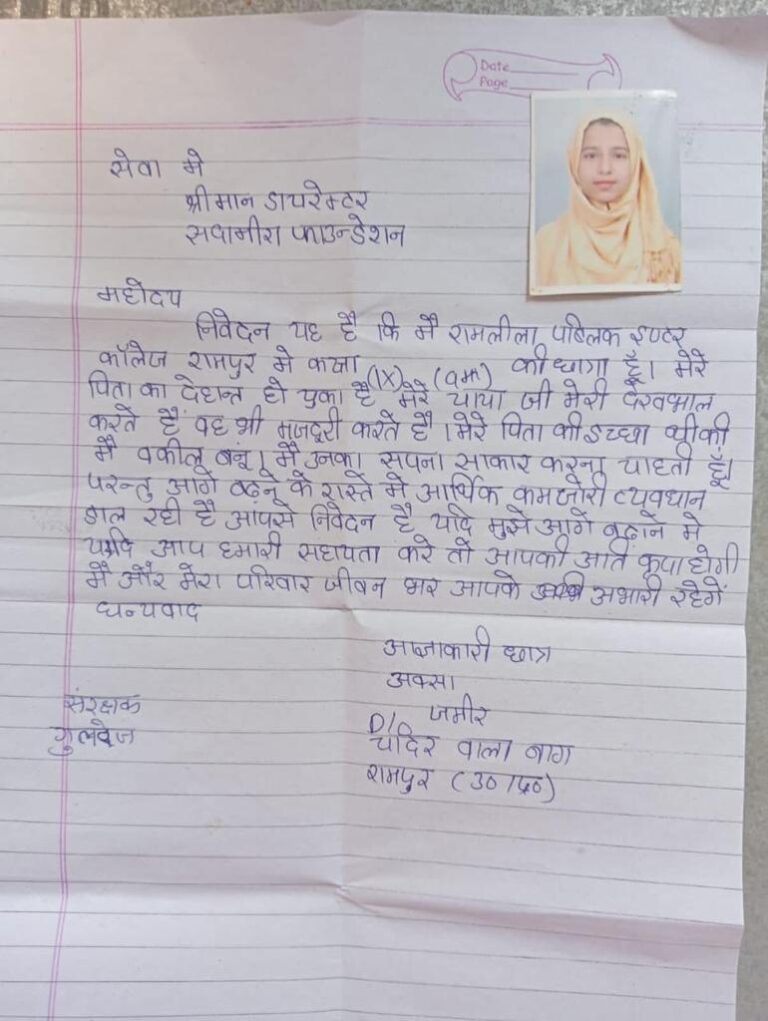 Date
Page
सेवा मे
श्रीमान डायरेक्टर
सदानीरा फाउन्डेशन
महोदय
निवेदन यह है कि मै रामलीला पब्लिक इण्टर
कॉलेज रामपुर मे कक्षा (IX) की छात्रा हूँ। मेरे
पिता का देहान्त हो चुका है मेरे चाचा जी मेरी देखभाल
करते हैं वह भी मजदूरी करते है। मेरे पिता की इच्छा थी की
मै वकील बनूं। मै उनका सपना साकार करना चाहती हूँ।
परन्तु आगे बढ़ने के रास्ते मे आर्थिक कमजोरी व्यवधान
डाल रही है आपसे निवेदन है यदि मुझे आगे बढ़ाने मे
यदि आप हमारी सहायता करे तो आपकी अति कृपा होगी
मै और मेरा परिवार जीवन भर आपके अभारी रहेगें
धन्यवाद
आज्ञाकारी छात्र
अक्सा
D/ जमीर
वाला बाग
रामपुर (उ०प्र०)
संरक्षक
गुलवेज